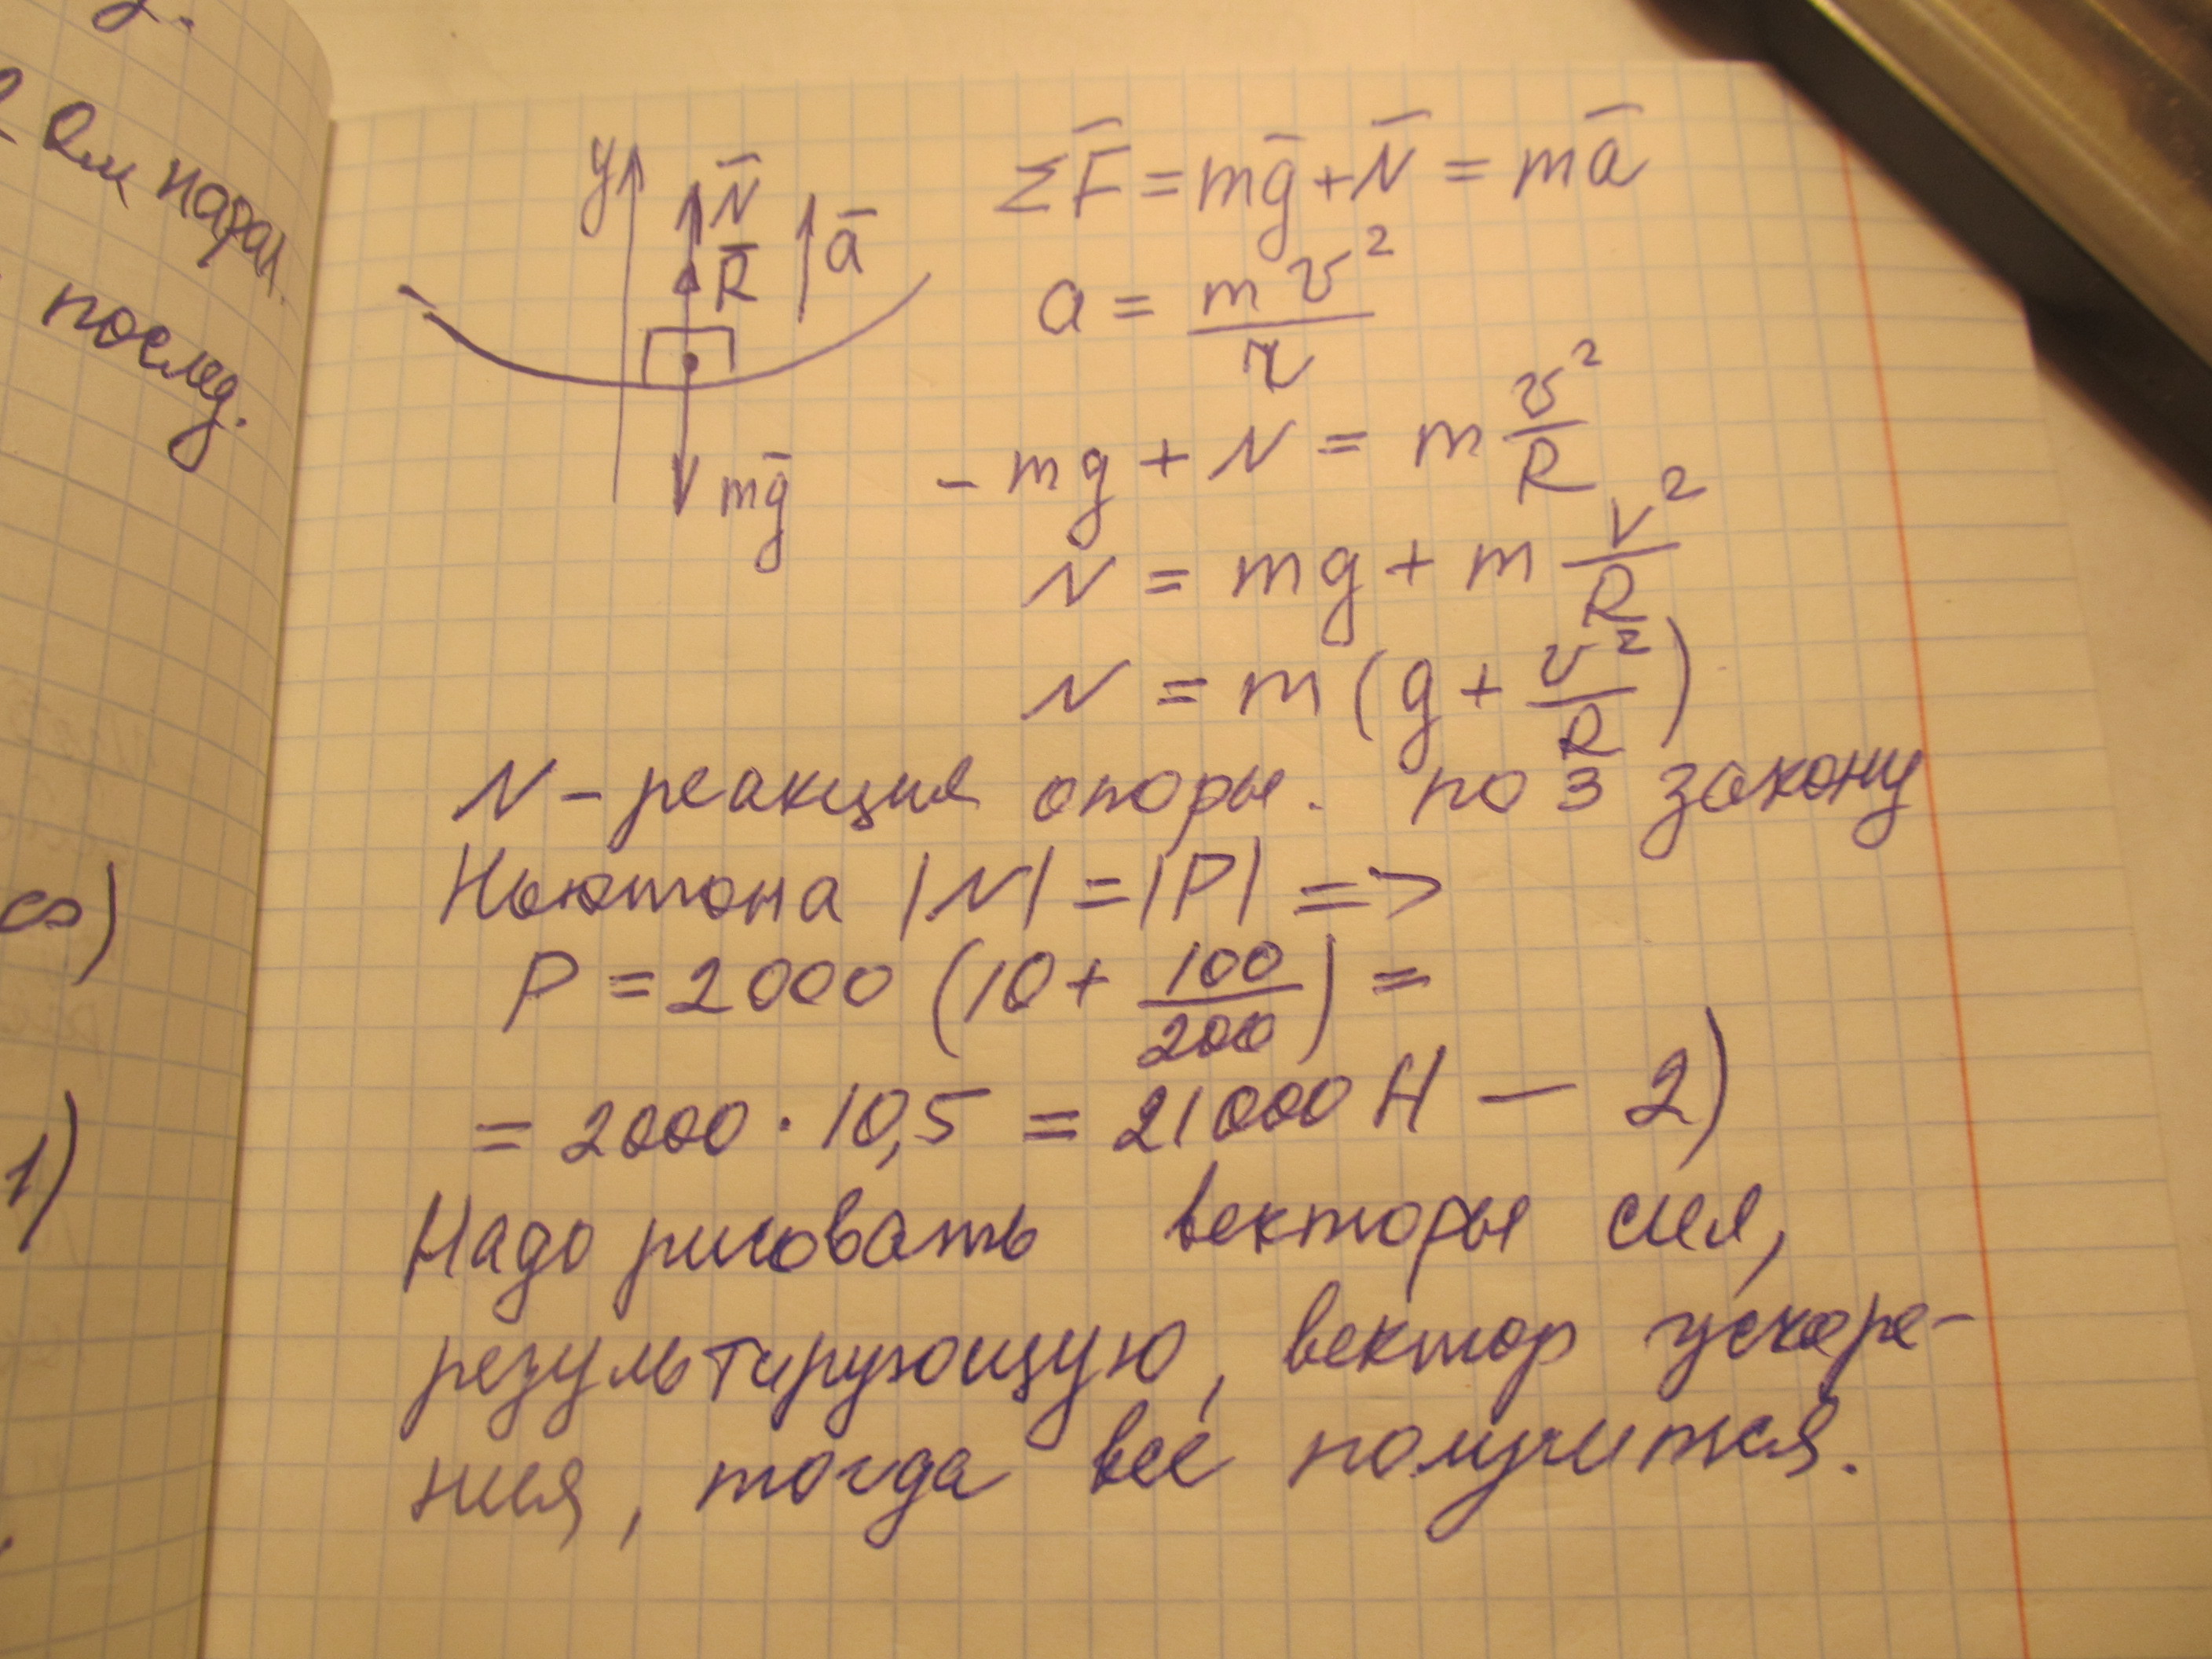 2 Ом парал.
послед.
1)
y
N̄
R̄
ā
mḡ
ΣF̄ = mḡ + N̄ = mā
a = mv²/r
- mg + N = m v²/R
N = mg + m v²/R
N = m(g + v²/R)
N – реакция опоры. по 3 закону
Ньютона |N| = |P| =>
P = 2000 (10 + 100/200) =
= 2000 · 10,5 = 21000 Н — 2)
Надо рисовать векторы сил,
результирующую, вектор ускоре-
ния, тогда все получится.